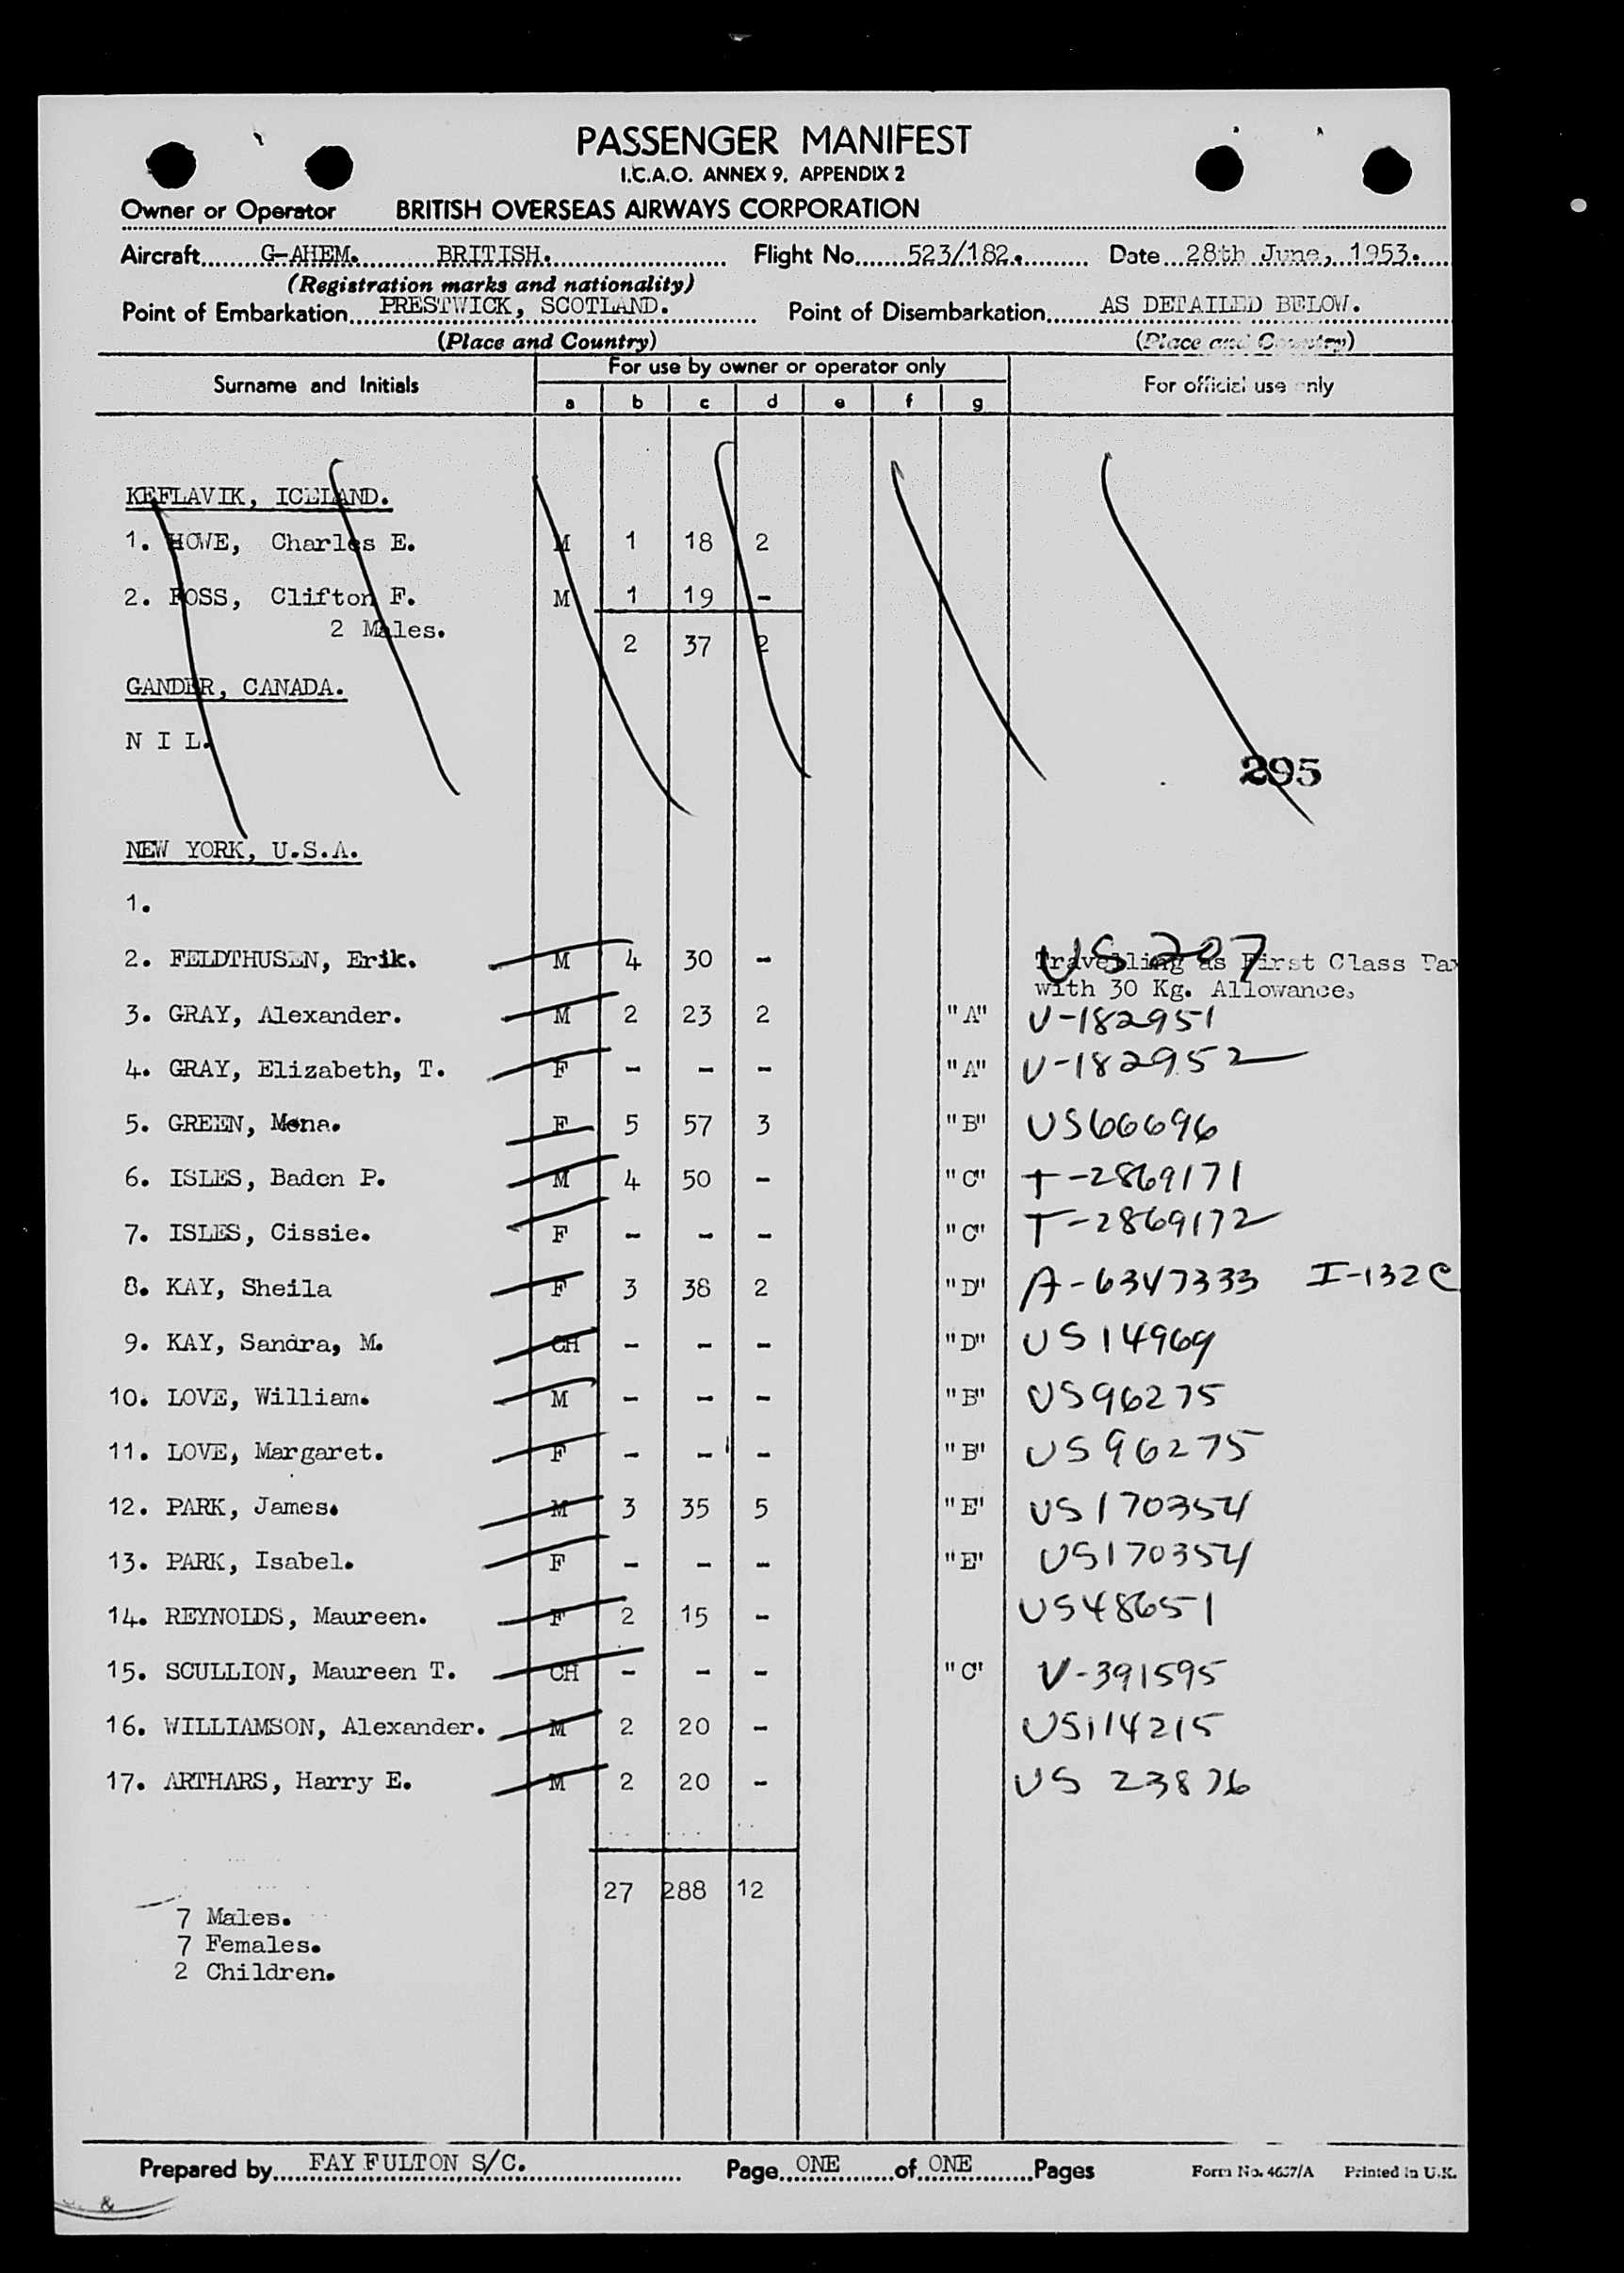 PASSENGER MANIFEST
I.C.A.O. ANNEX 9, APPENDIX 2
Owner or Operator BRITISH OVERSEAS AIRWAYS CORPORATION
Aircraft G-AHEM. BRITISH. Flight No. 523/182. Date 28th June, 1953.
(Registration marks and nationality)
Point of Embarkation PRESTWICK, SCOTLAND. Point of Disembarkation AS DETAILED BELOW.
(Place and Country) (Place and Country)
Surname and Initials For use by owner or operator only For official use only
a b c d e f g
KEFLAVIK, ICELAND.
1. HOWE, Charles E. M 1 18 2
2. ROSS, Clifton F. M 1 19 -
2 Males. 2 37 2
GANDER, CANADA.
N I L.
295
NEW YORK, U.S.A.
1.
2. FELDTHUSEN, Erik. M 4 30 - US 207 Travelling as First Class Pax
with 30 Kg. Allowance.
3. GRAY, Alexander. M 2 23 2 "A" V-182951
4. GRAY, Elizabeth, T. F - - - "A" V-182952
5. GREEN, Mona. F 5 57 3 "B" US66696
6. ISLES, Baden P. M 4 50 - "C" T-2869171
7. ISLES, Cissie. F - - - "C" T-2869172
8. KAY, Sheila F 3 38 2 "D" A-6347333 I-132C
9. KAY, Sandra, M. CH - - - "D" US14969
10. LOVE, William. M - - - "B" US96275
11. LOVE, Margaret. F - - - "B" US96275
12. PARK, James. M 3 35 5 "E" US170354
13. PARK, Isabel. F - - - "E" US170354
14. REYNOLDS, Maureen. F 2 15 - US48651
15. SCULLION, Maureen T. CH - - - "C" V-391595
16. WILLIAMSON, Alexander. M 2 20 - US114215
17. ARTHARS, Harry E. M 2 20 - US 23876
27 288 12
7 Males.
7 Females.
2 Children.
Prepared by FAY FULTON S/C. Page ONE of ONE Pages Form No. 4637/A Printed in U.K.